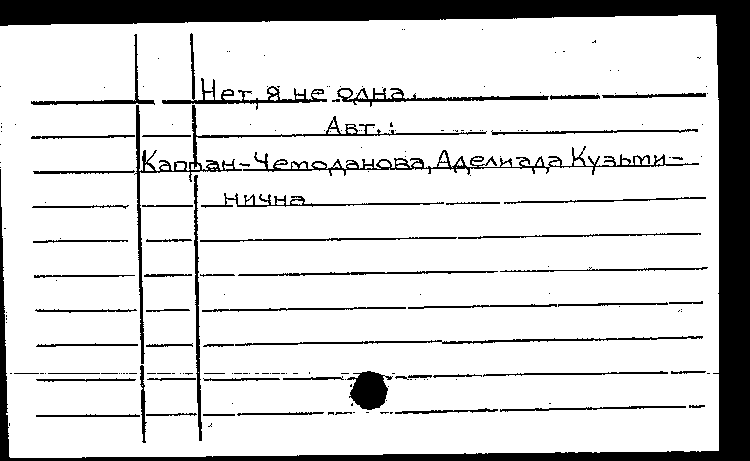 Нет, я не одна.
Авт.:
Капран-Чемоданова, Аделиада Кузьми-
нична